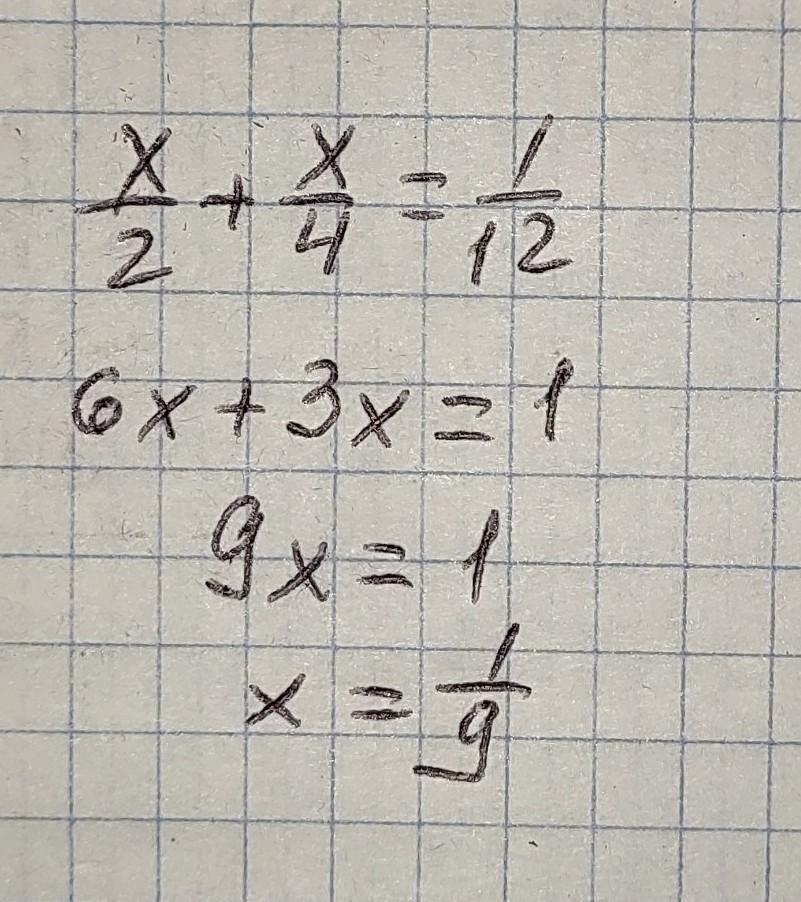 x/2 + x/4 = 1/12
6x + 3x = 1
9x = 1
x = 1/9